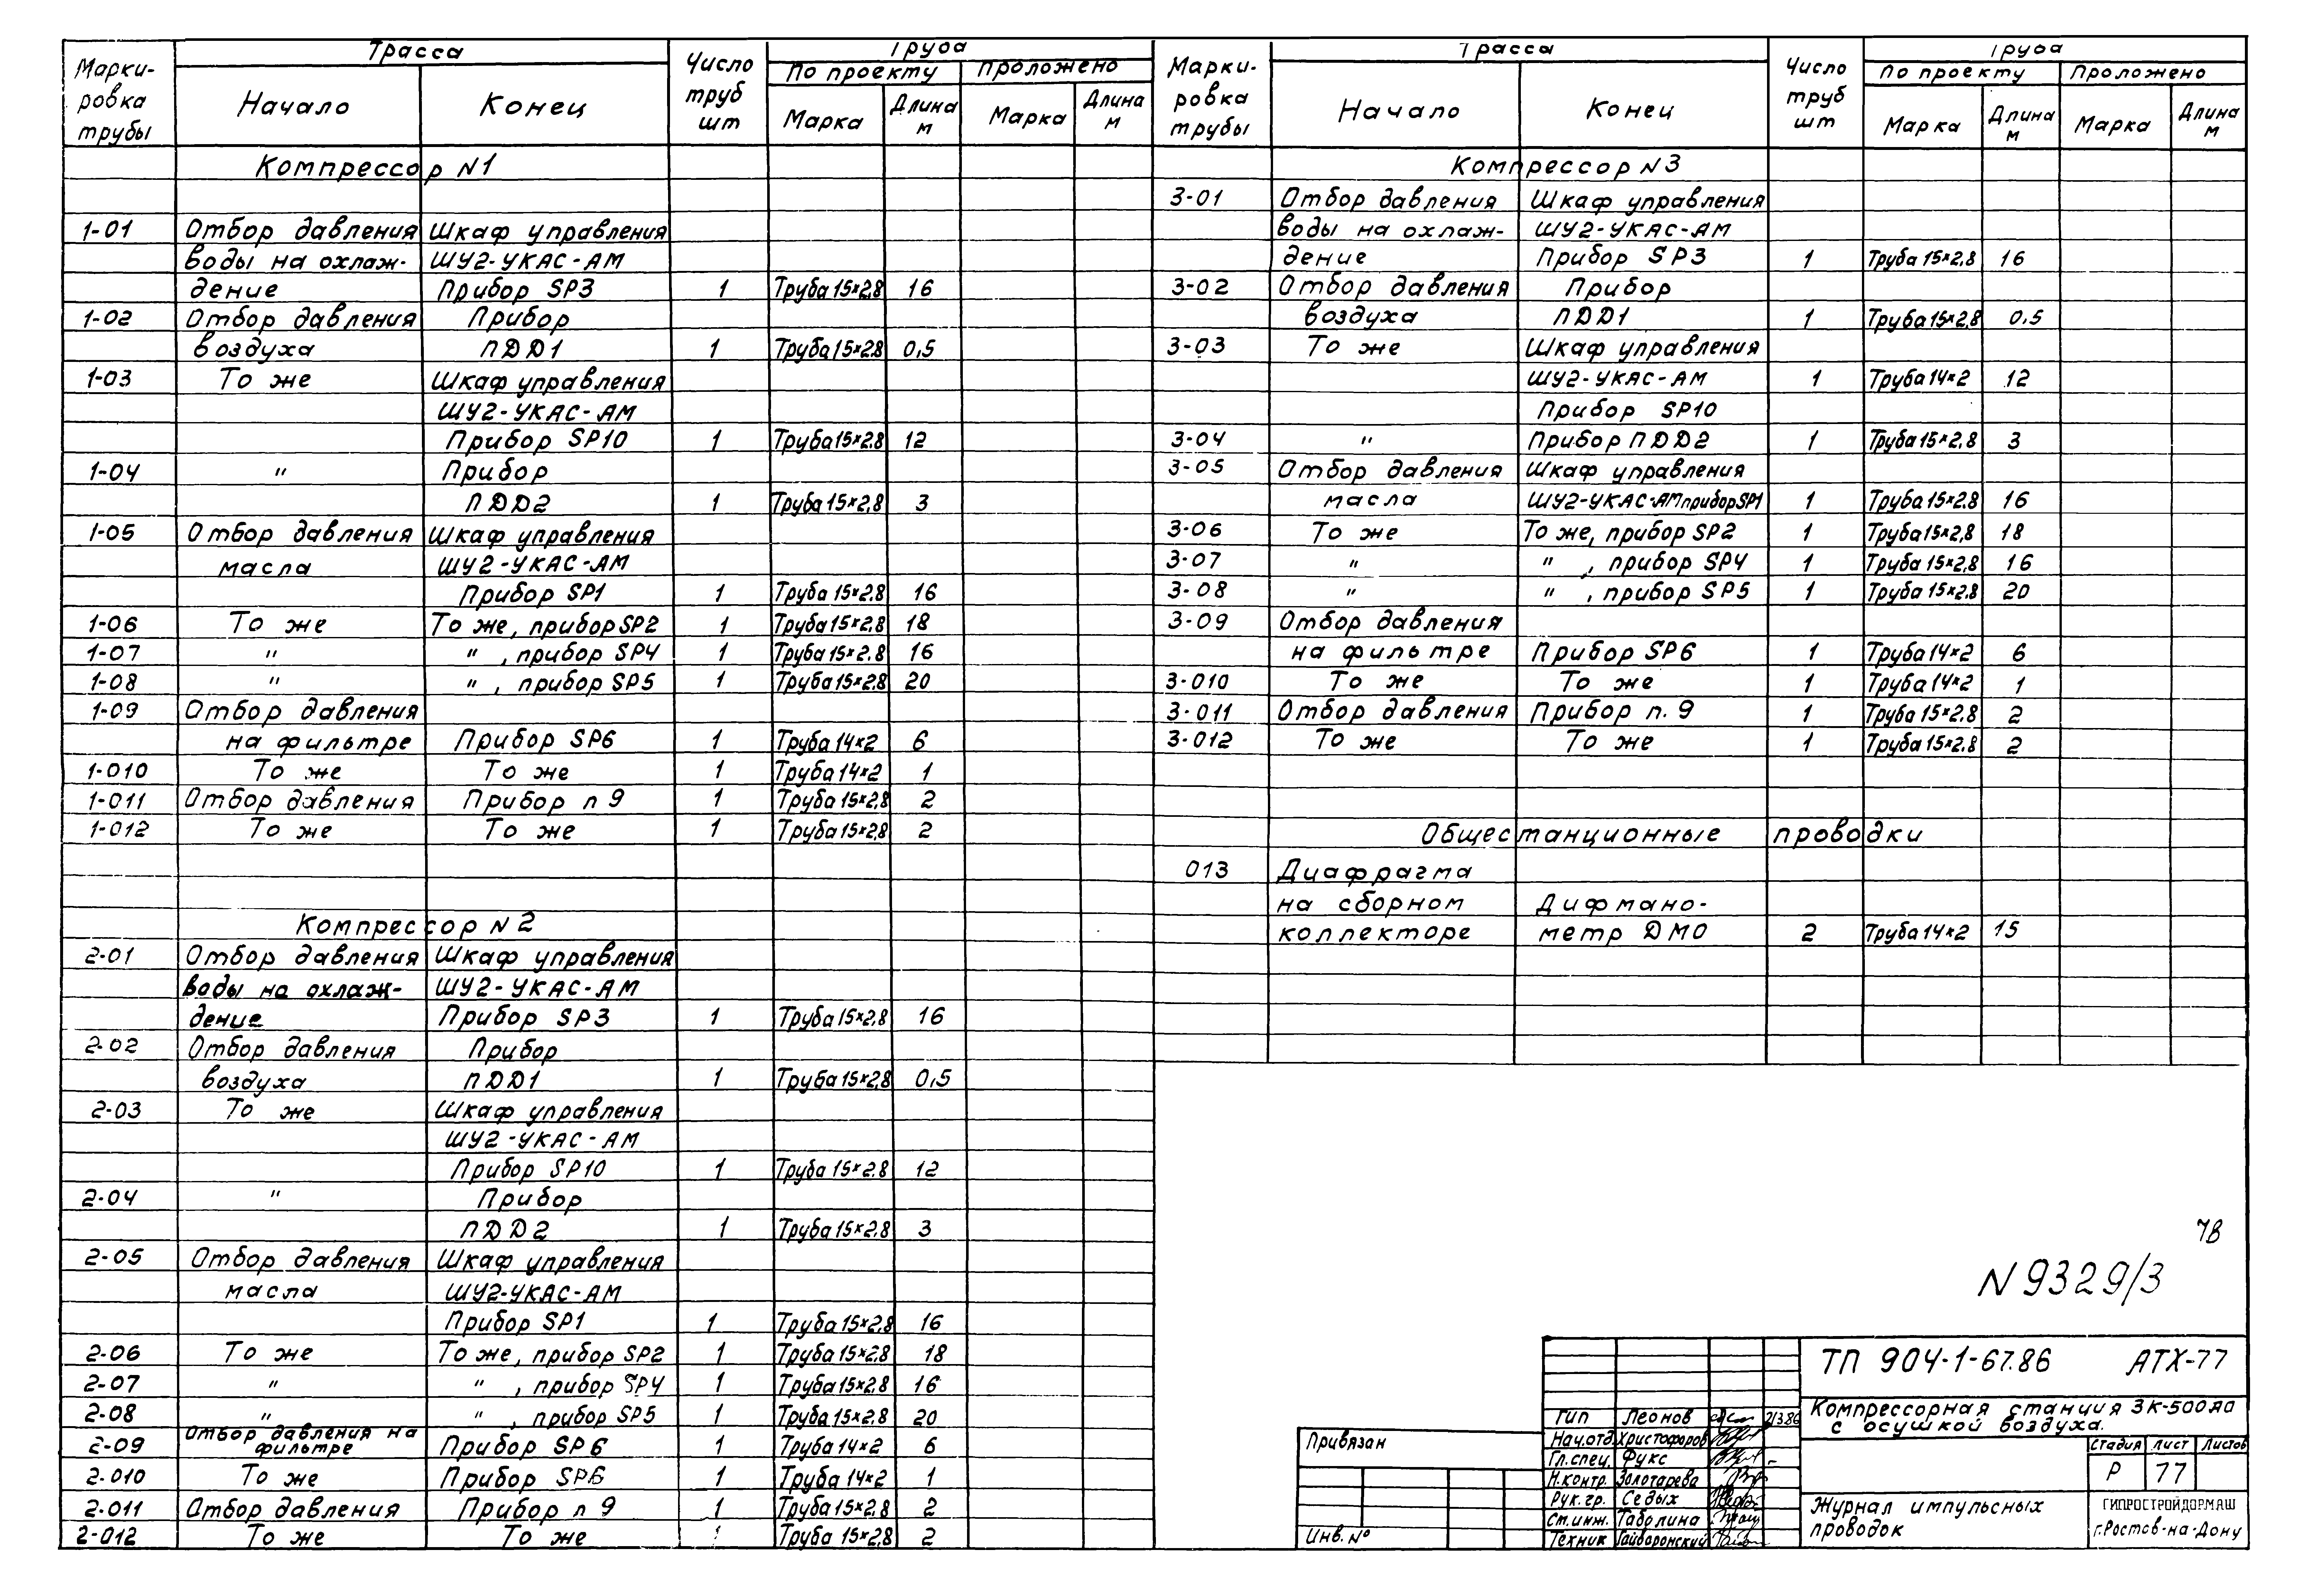 Марки-ровка трубы | Трасса | Число труб шт | Труба
Начало | Конец | По проекту | Проложено
Марка | Длина м | Марка | Длина м
Компрессор N1
1-01 Отбор давления Шкаф управления
воды на охлаж- ШУ2-УКАС-АМ
дение Прибор SP3 1 Труба 15×2,8 16
1-02 Отбор давления Прибор
воздуха ПДД1 1 Труба 15×2,8 0,5
1-03 То же Шкаф управления
ШУ2-УКАС-АМ
Прибор SP10 1 Труба 15×2,8 12
1-04 " Прибор
ПДД2 1 Труба 15×2,8 3
1-05 Отбор давления Шкаф управления
масла ШУ2-УКАС-АМ
Прибор SP1 1 Труба 15×2,8 16
1-06 То же То же, прибор SP2 1 Труба 15×2,8 18
1-07 " " , прибор SP4 1 Труба 15×2,8 16
1-08 " " , прибор SP5 1 Труба 15×2,8 20
1-09 Отбор давления
на фильтре Прибор SP6 1 Труба 14×2 6
1-010 То же То же 1 Труба 14×2 1
1-011 Отбор давления Прибор п 9 1 Труба 15×2,8 2
1-012 То же То же 1 Труба 15×2,8 2
Компрессор N2
2-01 Отбор давления Шкаф управления
воды на охлаж- ШУ2-УКАС-АМ
дение Прибор SP3 1 Труба 15×2,8 16
2-02 Отбор давления Прибор
воздуха ПДД1 1 Труба 15×2,8 0,5
2-03 То же Шкаф управления
ШУ2-УКАС-АМ
Прибор SP10 1 Труба 15×2,8 12
2-04 " Прибор
ПДД2 1 Труба 15×2,8 3
2-05 Отбор давления Шкаф управления
масла ШУ2-УКАС-АМ
Прибор SP1 1 Труба 15×2,8 16
2-06 То же То же, прибор SP2 1 Труба 15×2,8 18
2-07 " " , прибор SP4 1 Труба 15×2,8 16
2-08 " " , прибор SP5 1 Труба 15×2,8 20
2-09 Отбор давления на фильтре Прибор SP6 1 Труба 14×2 6
2-010 То же Прибор SP6 1 Труба 14×2 1
2-011 Отбор давления Прибор п 9 1 Труба 15×2,8 2
2-012 То же То же 1 Труба 15×2,8 2
Марки-ровка трубы | Трасса | Число труб шт | Труба
Начало | Конец | По проекту | Проложено
Марка | Длина м | Марка | Длина м
Компрессор N3
3-01 Отбор давления Шкаф управления
воды на охлаж- ШУ2-УКАС-АМ
дение Прибор SP3 1 Труба 15×2,8 16
3-02 Отбор давления Прибор
воздуха ПДД1 1 Труба 15×2,8 0,5
3-03 То же Шкаф управления
ШУ2-УКАС-АМ 1 Труба 14×2 12
Прибор SP10
3-04 " Прибор ПДД2 1 Труба 15×2,8 3
3-05 Отбор давления Шкаф управления
масла ШУ2-УКАС-АМ прибор SP1 1 Труба 15×2,8 16
3-06 То же То же, прибор SP2 1 Труба 15×2,8 18
3-07 " " , прибор SP4 1 Труба 15×2,8 16
3-08 " " , прибор SP5 1 Труба 15×2,8 20
3-09 Отбор давления
на фильтре Прибор SP6 1 Труба 14×2 6
3-010 То же То же 1 Труба 14×2 1
3-011 Отбор давления Прибор п. 9 1 Труба 15×2,8 2
3-012 То же То же 1 Труба 15×2,8 2
Общестанционные проводки
013 Диафрагма
на сборном Дифмано-
коллекторе метр ДМО 2 Труба 14×2 15
78
N 9329/3
ТП 904-1-67.86 АТХ-77
Компрессорная станция 3К-500ЯО
с осушкой воздуха.
Стадия Лист Листов
Р 77
Журнал импульсных
проводок
ГИПРОСТРОЙДОРМАШ
г.Ростов-на-Дону
Гип Леонов
Нач.отд. Христофоров
Гл.спец. Фукс
Н.контр. Золотарева
Рук.гр. Седых
Ст.инж. Таболина
Техник Гайворонский
Привязан
Инв. №